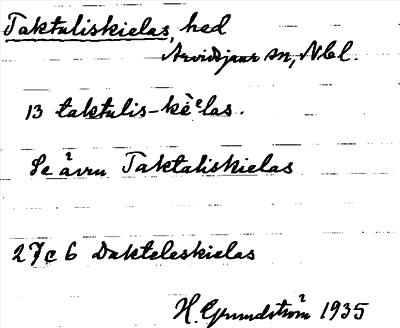 Taktaliskielas, hed
Arvidsjaur sn, Nbl.
13 taktulis-kè͔ᵉlas.
Se även Taktaliskielas
27c6 Dakteleskielas
H. Grundström 1935